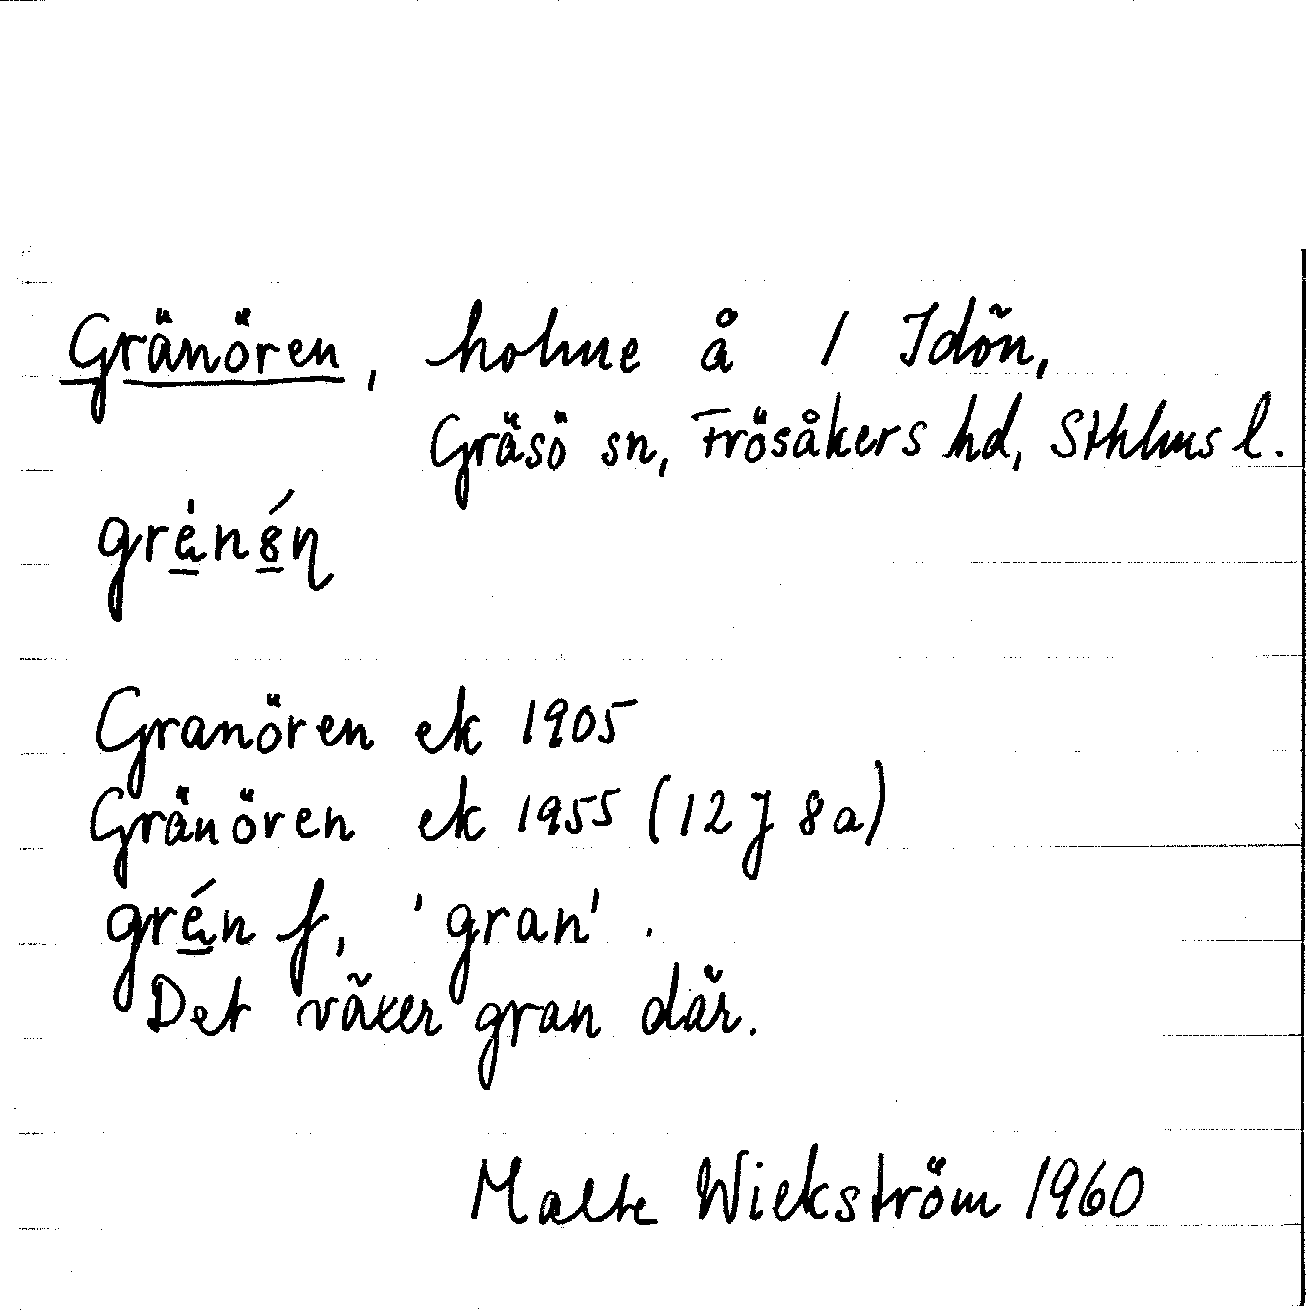 Gränören, holme å 1 Idön,
Gräsö sn, Frösåkers hd, Sthlms l.
Granören ek 1905
Gränören ek 1955 (12 J 8 a)
f, 'gran'.
Det växer gran där.
Malte Wickström 1960